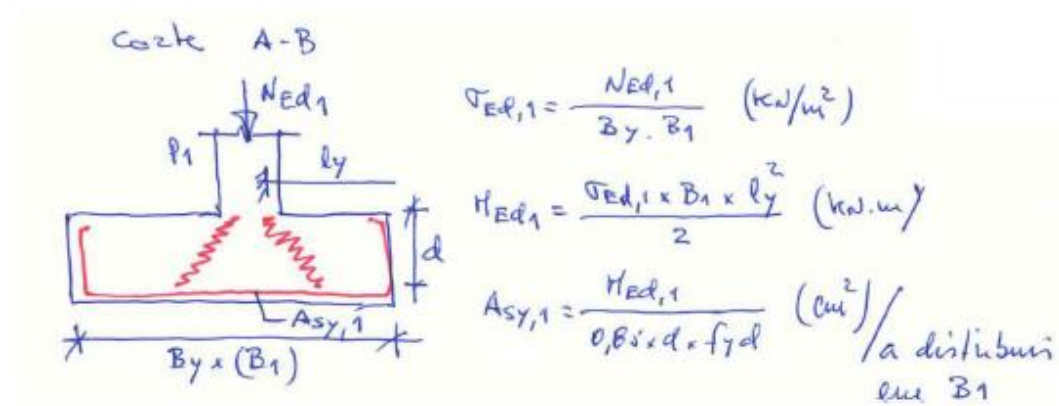 Corte A-B
NEd1
P1
ly
d
Asy,1
By x (B1)
σEd,1 = NEd,1 / By . B1 (kN/m²)
MEd1 = σEd,1 x B1 x ly² / 2 (kN.m)
Asy,1 = MEd,1 / 0,85 x d x fyd (cm²) / a distribuir
em B1